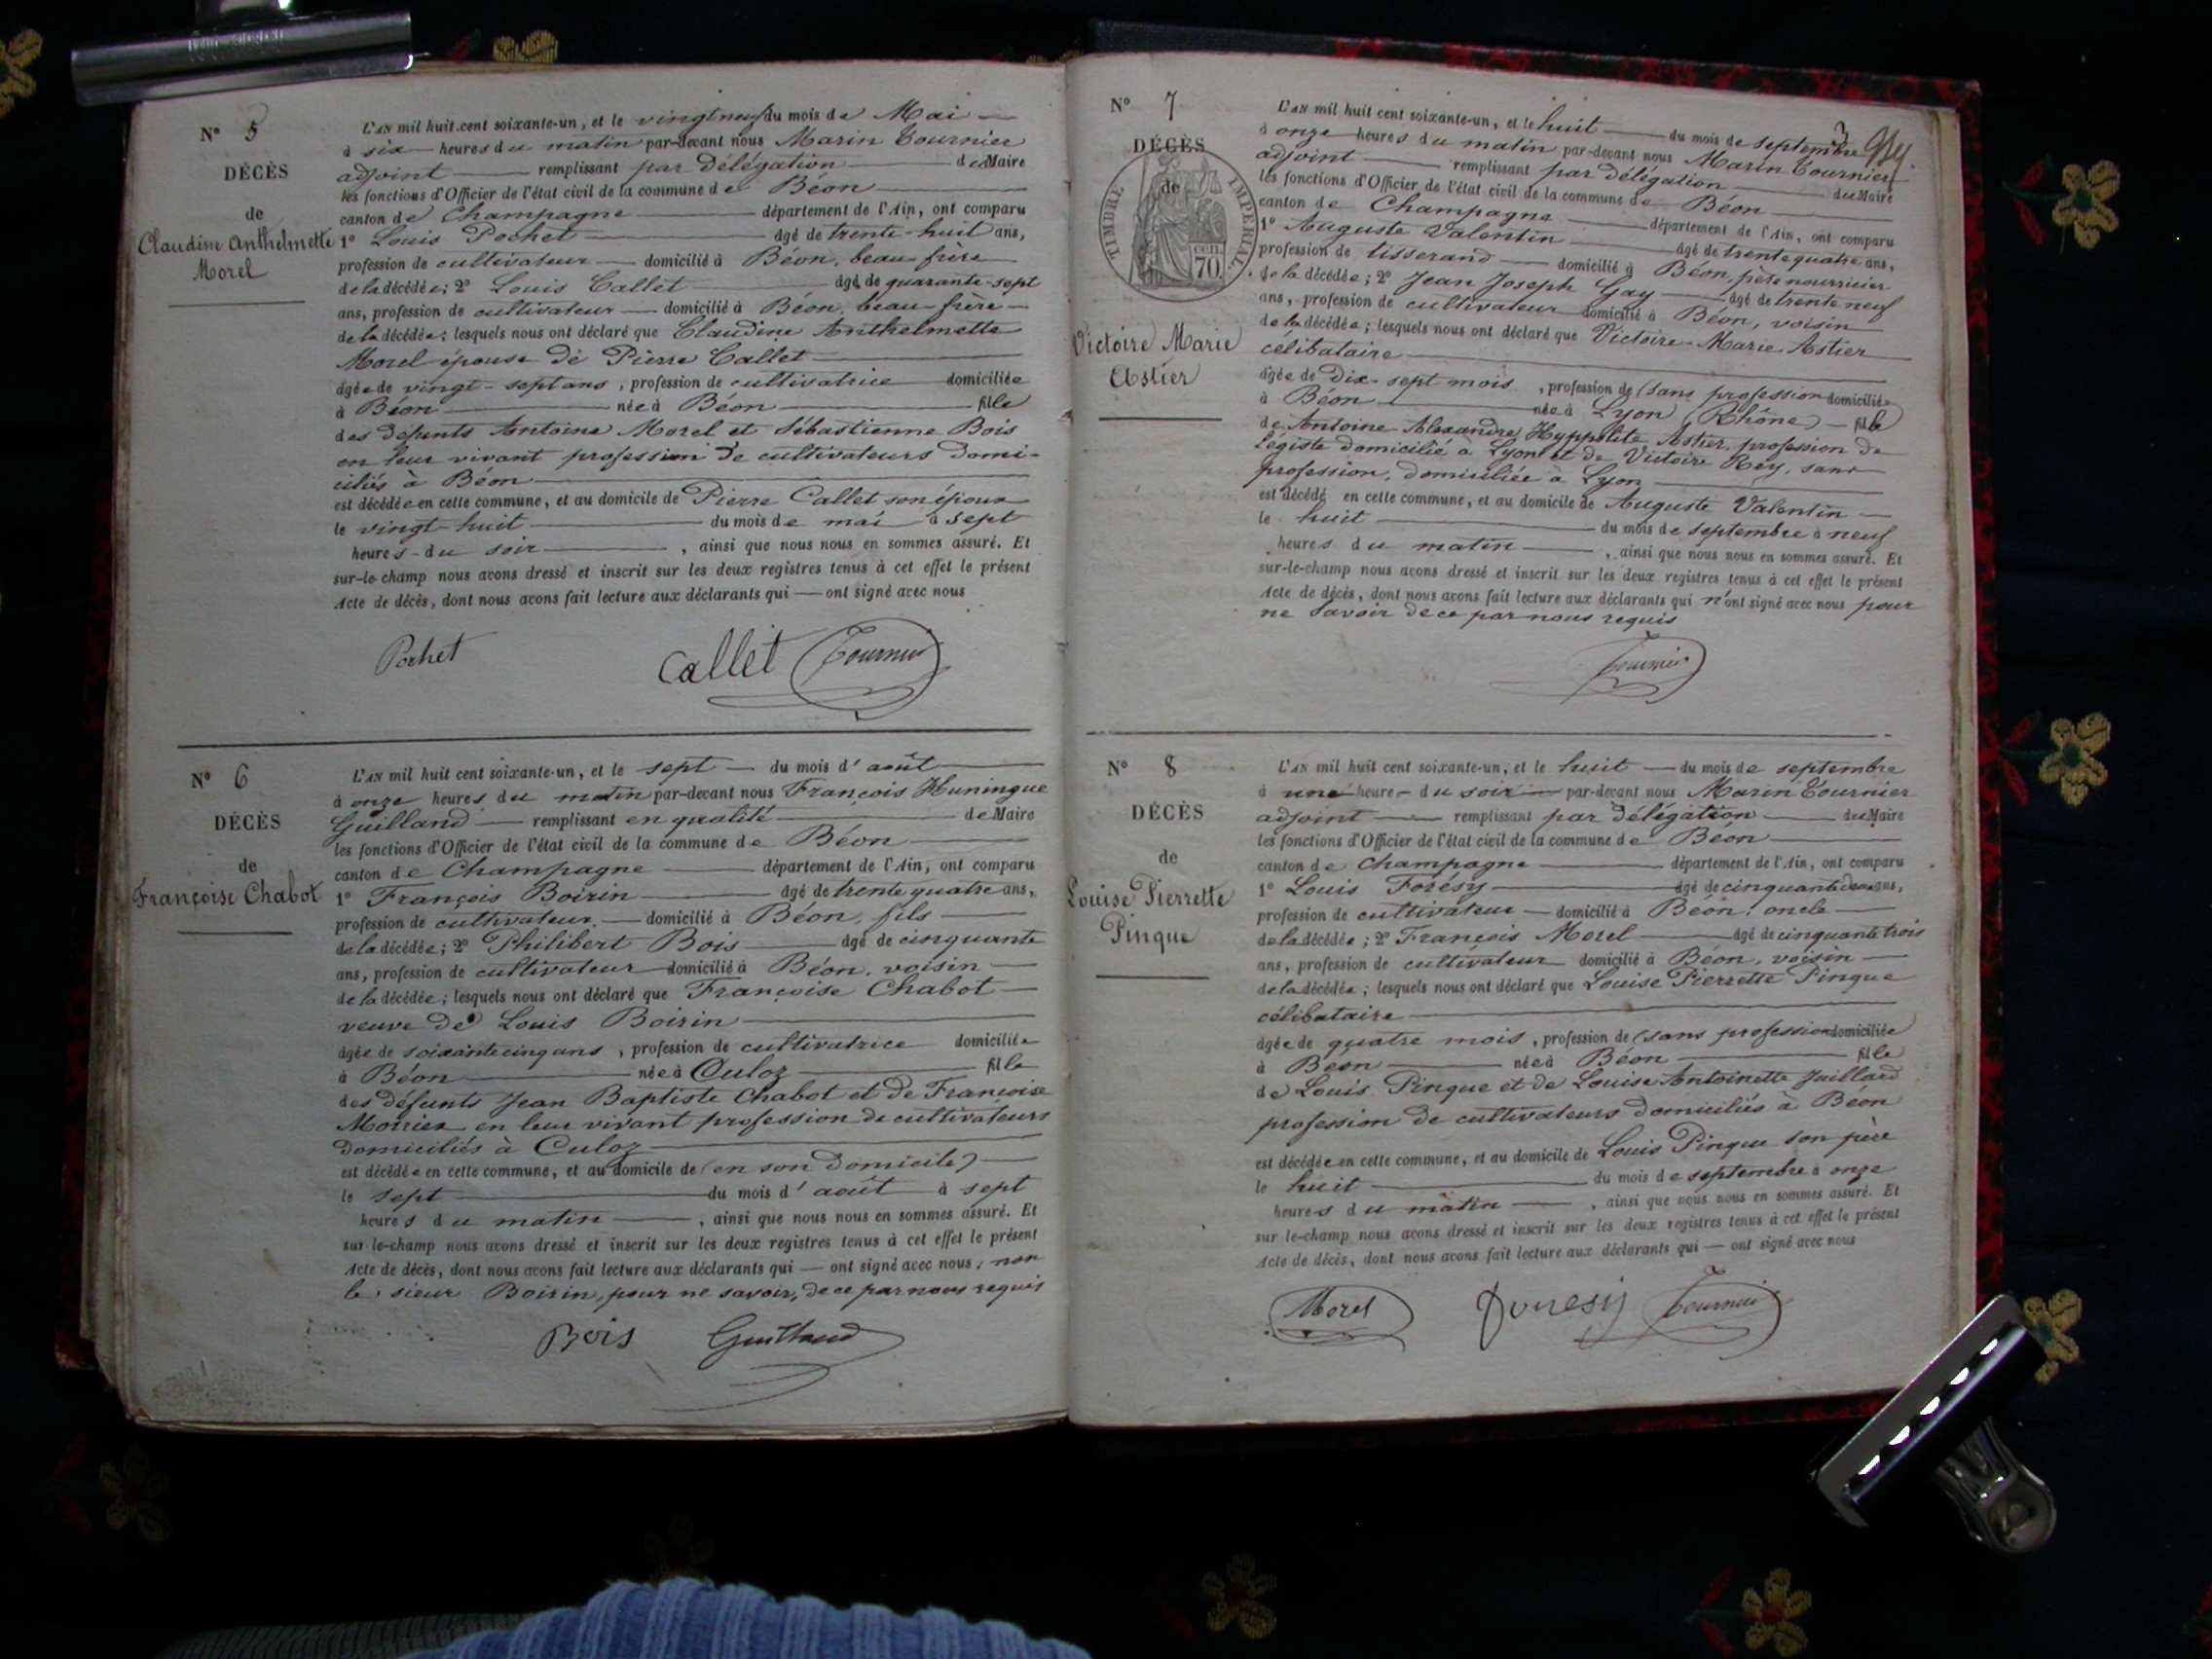 N° 5
DÉCÈS
de
Claudine Anthelmette
Morel
L'AN mil huit cent soixante-un, et le vingtneuf du mois de Mai
à six heures du matin par-devant nous Marin Tournier
adjoint remplissant par Délégation du Maire
les fonctions d'Officier de l'état civil de la commune de Béon
canton de Champagne département de l'Ain, ont comparu
1° Louis Pochet âgé de trente-huit ans,
profession de cultivateur domicilié à Béon, beau-frère
de la décédée; 2° Louis Callet âgé de quarante-sept
ans, profession de cultivateur domicilié à Béon, beau-frère
de la décédée; lesquels nous ont déclaré que Claudine Anthelmette
Morel épouse de Pierre Callet
âgée de vingt-sept ans, profession de cultivatrice domiciliée
à Béon née à Béon fille
des défunts Antoine Morel et Sébastienne Bois
en leur vivant profession de cultivateurs domi-
ciliés à Béon
est décédée en cette commune, et au domicile de Pierre Callet son époux
le vingt-huit du mois de mai à sept
heures du soir, ainsi que nous nous en sommes assuré. Et
sur-le-champ nous avons dressé et inscrit sur les deux registres tenus à cet effet le présent
Acte de décès, dont nous avons fait lecture aux déclarants qui — ont signé avec nous
Pochet Callet Tournier
N° 6
DÉCÈS
de
Françoise Chabot
L'AN mil huit cent soixante-un, et le sept du mois d'août
à onze heures du matin par-devant nous François Huningue
Guilland remplissant en qualité de Maire
les fonctions d'Officier de l'état civil de la commune de Béon
canton de Champagne département de l'Ain, ont comparu
1° François Boirin âgé de trente quatre ans,
profession de cultivateur domicilié à Béon, fils
de la décédée; 2° Philibert Bois âgé de cinquante
ans, profession de cultivateur domicilié à Béon, voisin
de la décédée; lesquels nous ont déclaré que Françoise Chabot
veuve de Louis Boirin
âgée de soixante cinq ans, profession de cultivatrice domiciliée
à Béon née à Culoz fille
des défunts Jean Baptiste Chabot et de Françoise
en leur vivant profession de cultivateurs
domiciliés à Culoz
est décédée en cette commune, et au domicile de (en son domicile)
le sept du mois d'août à sept
heures du matin, ainsi que nous nous en sommes assuré. Et
sur-le-champ nous avons dressé et inscrit sur les deux registres tenus à cet effet le présent
Acte de décès, dont nous avons fait lecture aux déclarants qui — ont signé avec nous, non
le sieur Boirin, pour ne savoir, de ce par nous requis
Bois Guilland
3
N° 7
DÉCÈS
de
TIMBRE IMPERIAL
cen
70
Victoire Marie
Astier
L'AN mil huit cent soixante-un, et le huit du mois de septembre
à onze heures du matin par-devant nous Marin Tournier
adjoint remplissant par délégation du Maire
les fonctions d'Officier de l'état civil de la commune de Béon
canton de Champagne département de l'Ain, ont comparu
1° Auguste Valentin âgé de trente quatre ans,
profession de tisserand domicilié à Béon, père nourricier
de la décédée; 2° Jean Joseph Gay âgé de trente neuf
ans, profession de cultivateur domicilié à Béon, voisin
de la décédée; lesquels nous ont déclaré que Victoire-Marie Astier
célibataire
âgée de Dix-sept mois, profession de (sans profession domiciliée
à Béon née à Lyon (Rhône) fille
de Antoine Alexandre Hyppolite Astier, profession de
Légiste domicilié à Lyon et de Victoire Rey, sans
profession, domiciliée à Lyon
est décédé en cette commune, et au domicile de Auguste Valentin
le huit du mois de septembre à neuf
heures du matin, ainsi que nous nous en sommes assuré. Et
sur-le-champ nous avons dressé et inscrit sur les deux registres tenus à cet effet le présent
Acte de décès, dont nous avons fait lecture aux déclarants qui n'ont signé avec nous pour
ne savoir de ce par nous requis
Tournier
N° 8
DÉCÈS
de
Louise Pierrette
Pinque
L'AN mil huit cent soixante-un, et le huit du mois de septembre
à une heure du soir par-devant nous Marin Tournier
adjoint remplissant par délégation du Maire
les fonctions d'Officier de l'état civil de la commune de Béon
canton de Champagne département de l'Ain, ont comparu
1° Louis Forésy âgé de cinquante deux ans,
profession de cultivateur domicilié à Béon, oncle
de la décédée; 2° François Morel âgé de cinquante trois
ans, profession de cultivateur domicilié à Béon, voisin
de la décédée; lesquels nous ont déclaré que Louise Pierrette Pinque
célibataire
âgée de quatre mois, profession de (sans profession domiciliée
à Béon née à Béon fille
de Louis Pinque et de Louise Antoinette Juillard
profession de cultivateurs domiciliés à Béon
est décédée en cette commune, et au domicile de Louis Pinque son père
le huit du mois de septembre à onze
heures du matin, ainsi que nous nous en sommes assuré. Et
sur-le-champ nous avons dressé et inscrit sur les deux registres tenus à cet effet le présent
Acte de décès, dont nous avons fait lecture aux déclarants qui — ont signé avec nous
Morel Foresy Tournier